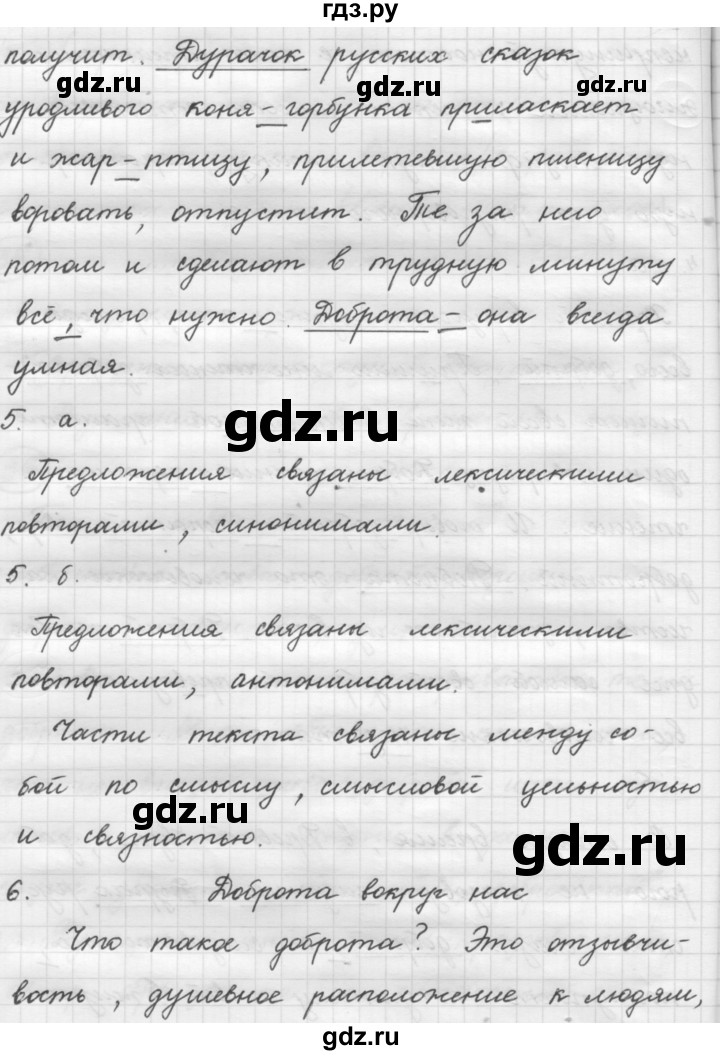 гдз.ру
получит. Дурачок русских сказок
gdz.ru gdz.ru gdz.ru
уродливого коня-горбунка приласкает
и жар-птицу, прилетевшую пшеницу
воровать, отпустит. Те за него
потом и сделают в трудную минуту
всё, что нужно. Доброта - она всегда
умная.
gdz.ru
5. а.
Предложения связаны лексическими
повторами, синонимами.
5. б.
Предложения связаны лексическими
повторами, антонимами.
Части текста связаны между со-
бой по смыслу, смысловой цельностью
gdz.ru gdz.ru
и связностью.
6. Доброта вокруг нас
Что такое доброта? Это отзывчи-
вость, душевное расположение к людям,
gdz.ru